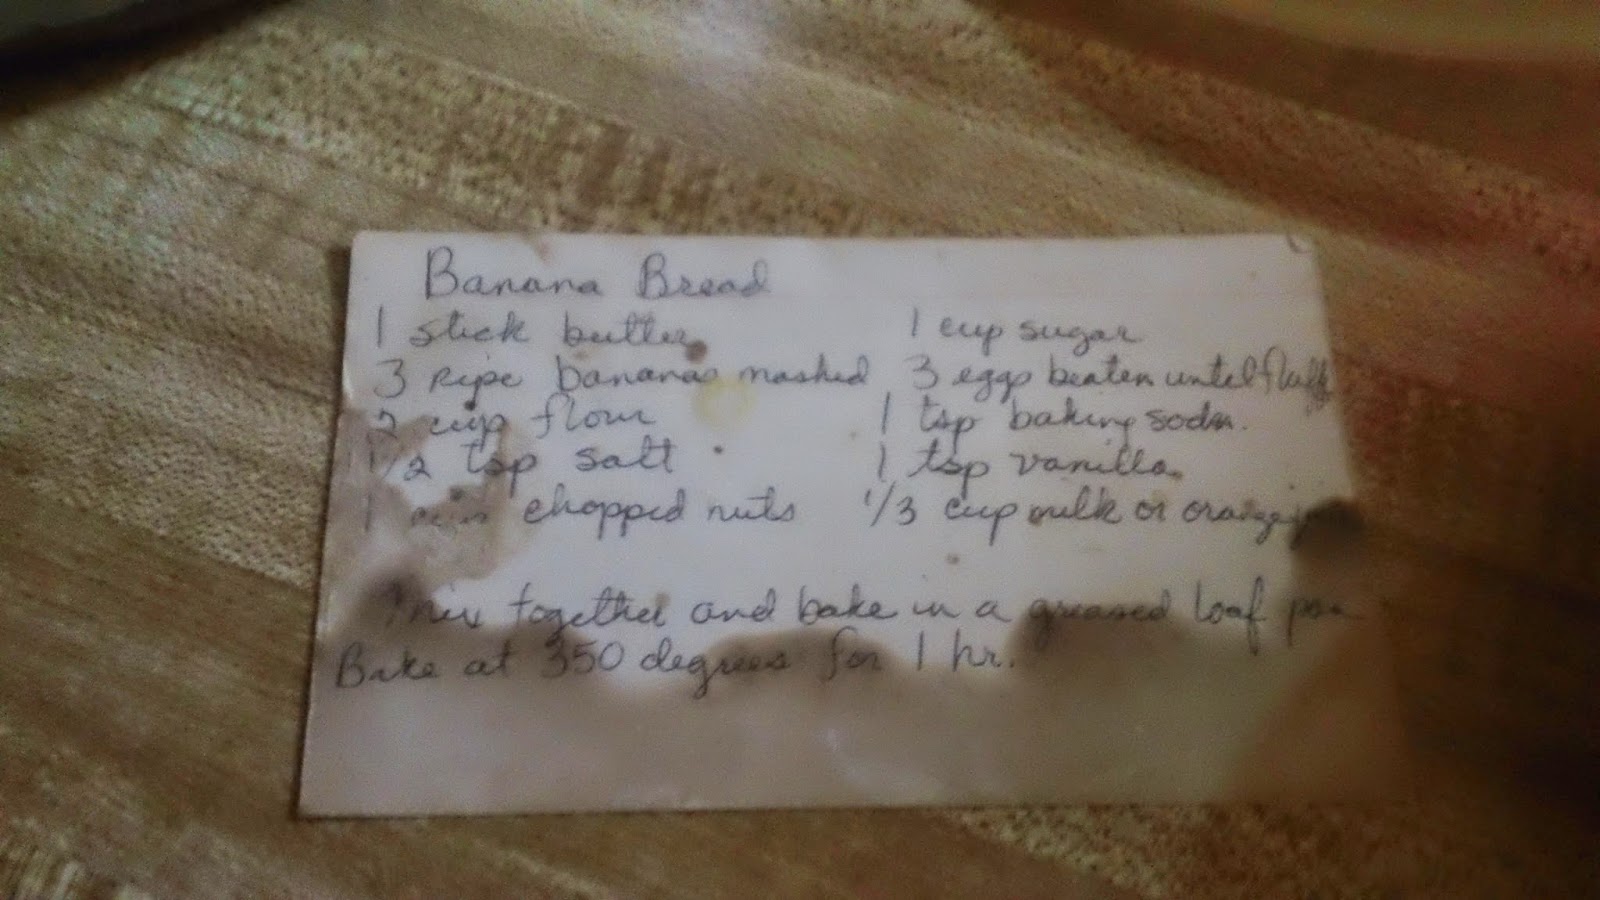 Banana Bread
1 stick butter 1 cup sugar
3 ripe bananas mashed 3 eggs beaten until fluffy
2 cup flour 1 tsp baking soda.
1/2 tsp salt 1 tsp vanilla
1 chopped nuts 1/3 cup milk or orange
Mix together and bake in a greased loaf pan
Bake at 350 degrees for 1 hr.